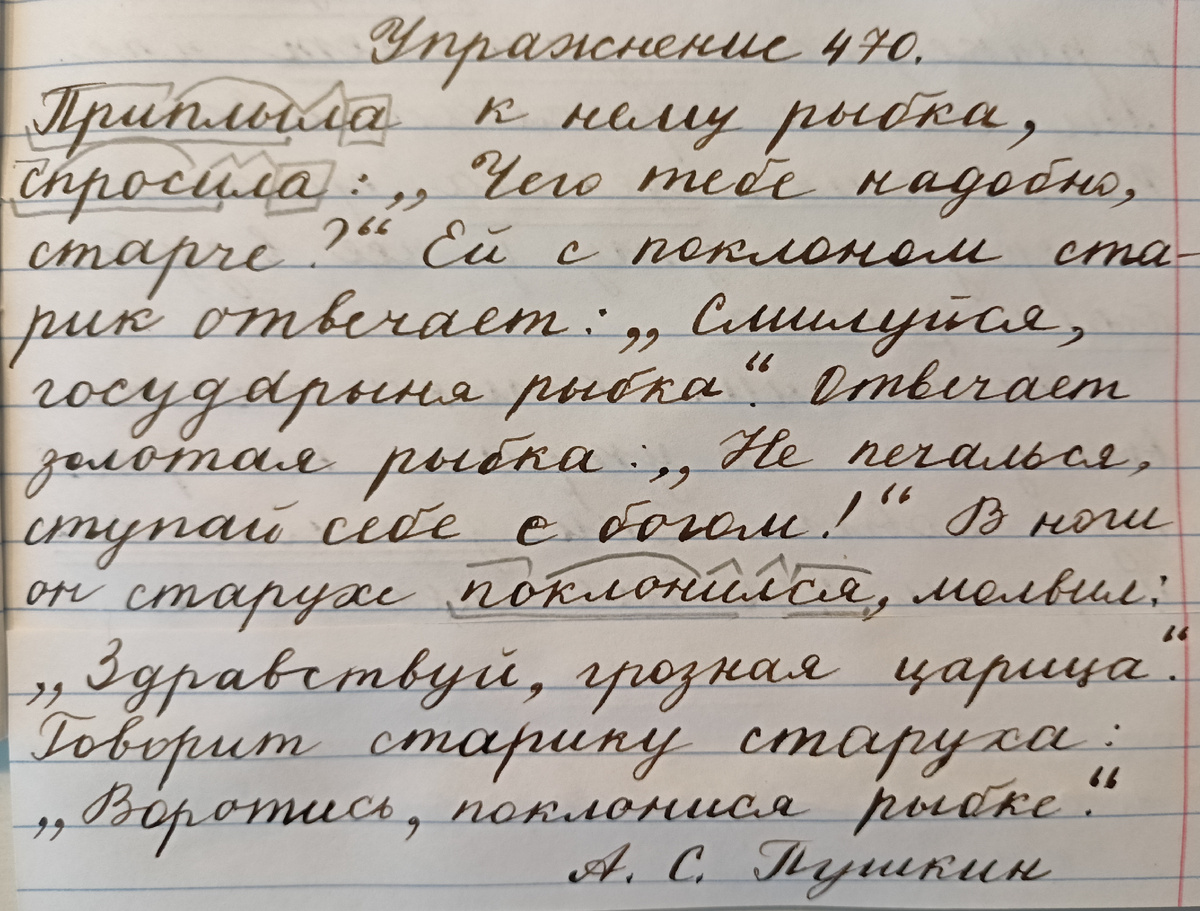 Упражнение 470.
Приплыла к нему рыбка,
спросила: „Чего тебе надобно,
старче?“ Ей с поклоном ста-
рик отвечает: „Смилуйся,
государыня рыбка“. Отвечает
золотая рыбка: „Не печалься,
ступай себе с богом!“ В ноги
он старухе поклонился, молвил:
„Здравствуй, грозная царица“.
Говорит старику старуха:
„Воротись, поклонися рыбке“.
А. С. Пушкин